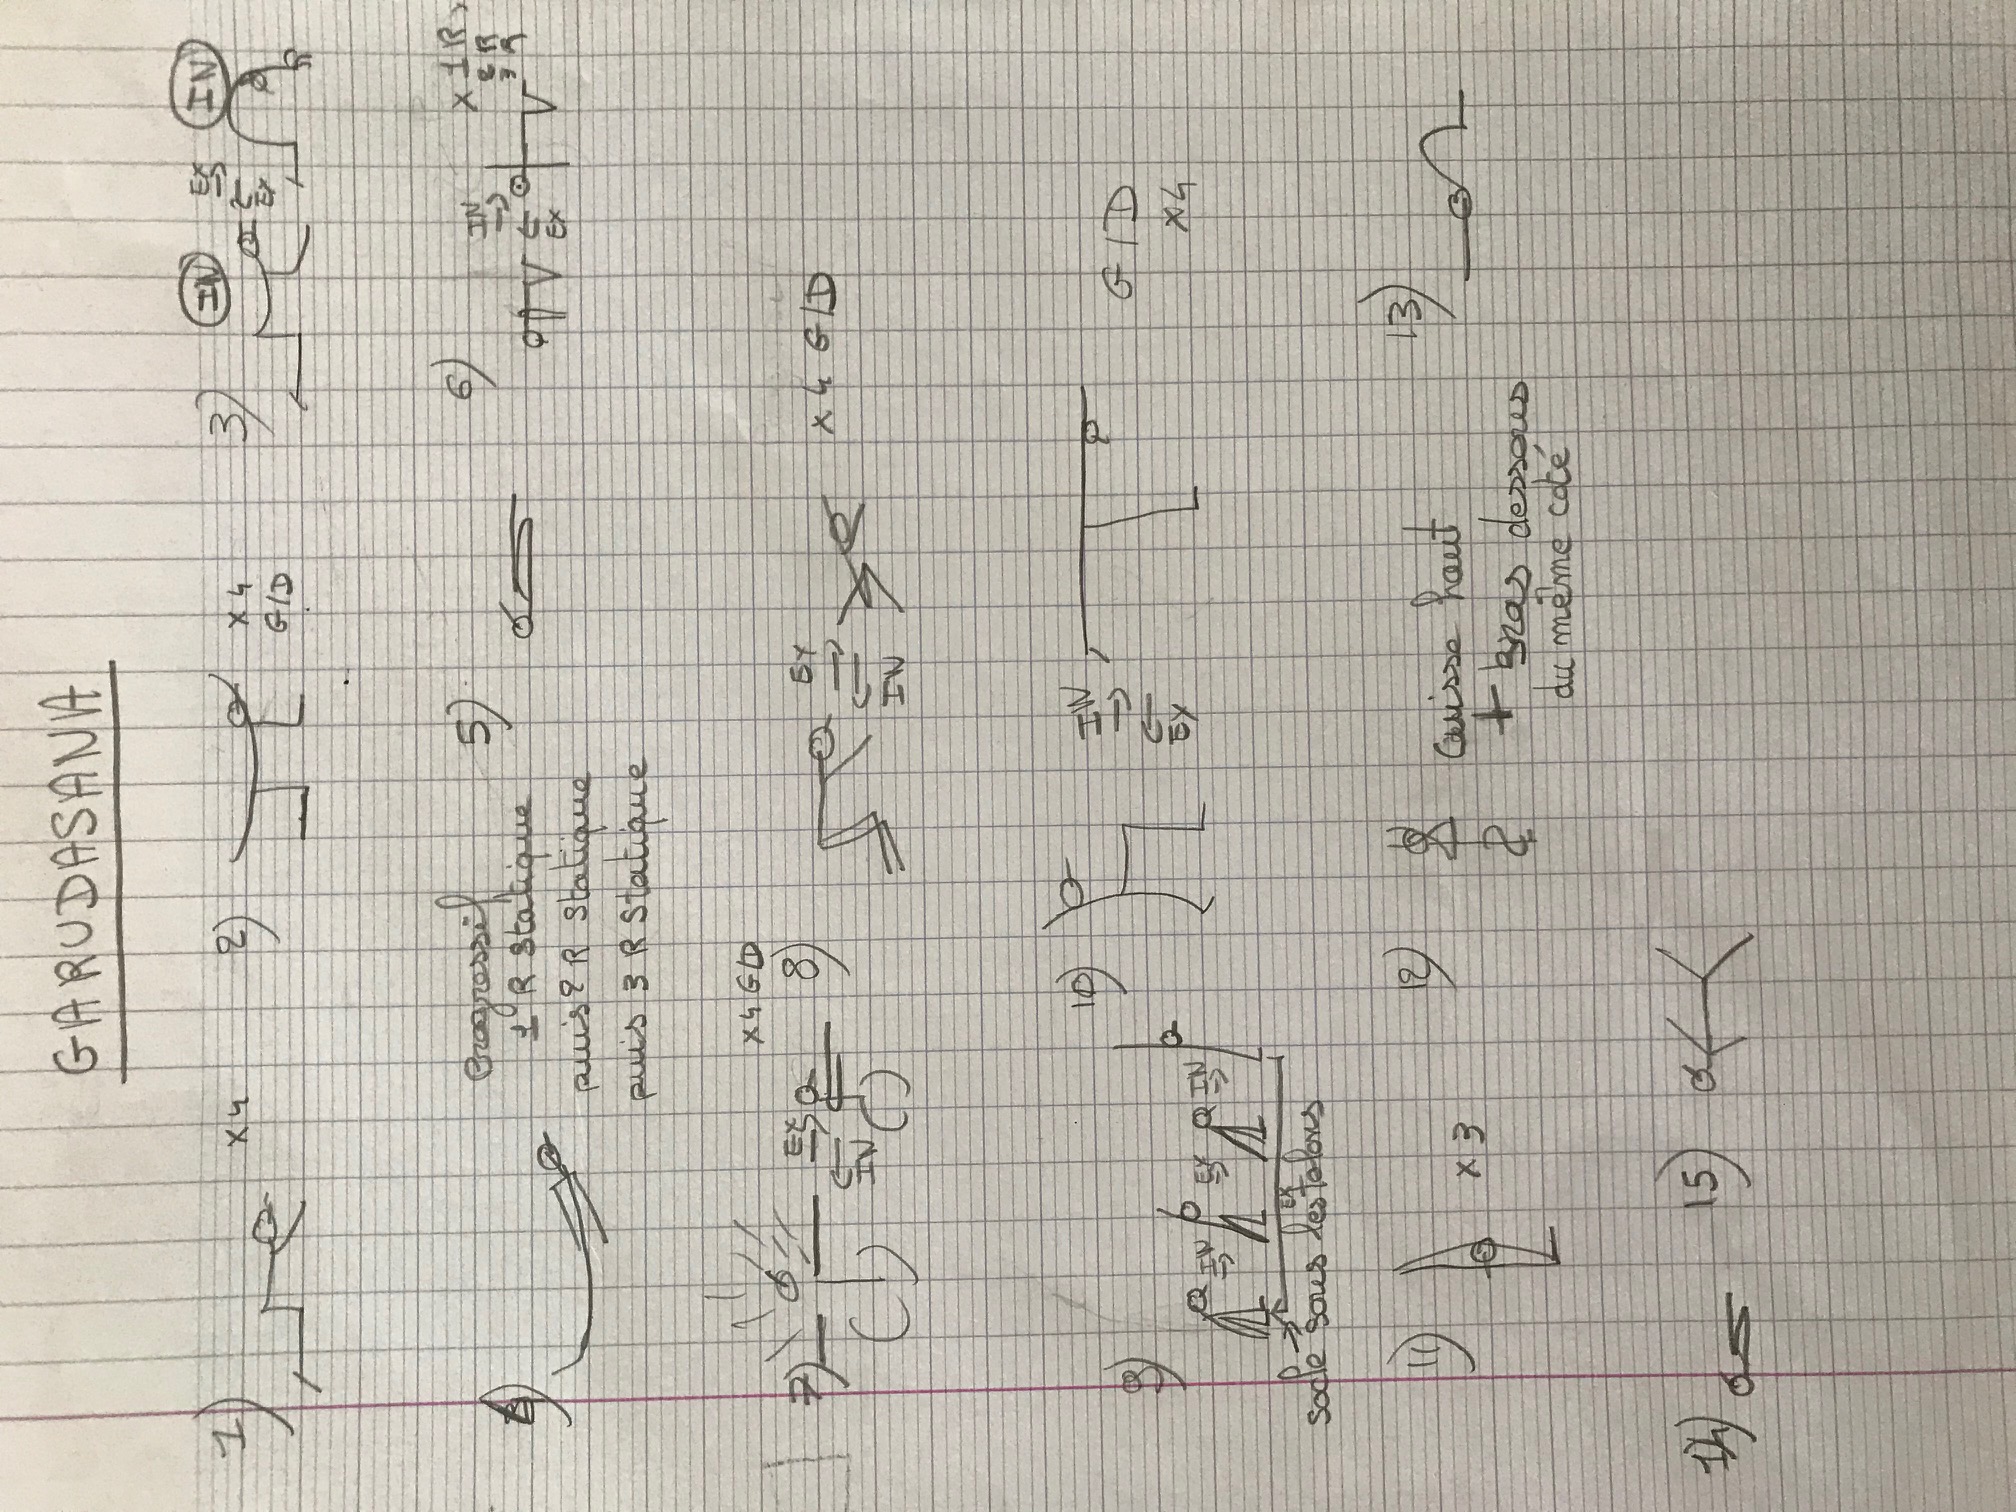 GARUDASANA
1) x4
2) x4
G/D
3) IN EX IN
EX
4) Progressif
1 R Statique
puis 2 R Statique
puis 3 R Statique
5)
6) IN x 1 R
EX 2 R
3 R
7) EX x4 G/D
IN
8) EX x 4 G/D
IN
9) IN EX IN
EX
socle sous les talons
10) IN G/D
EX x4
11) x 3
12) Cuisse haut
+ Bras dessous
du même côté
13)
14)
15)